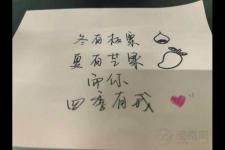 冬有松果
夏有芒果
而你
四季有我